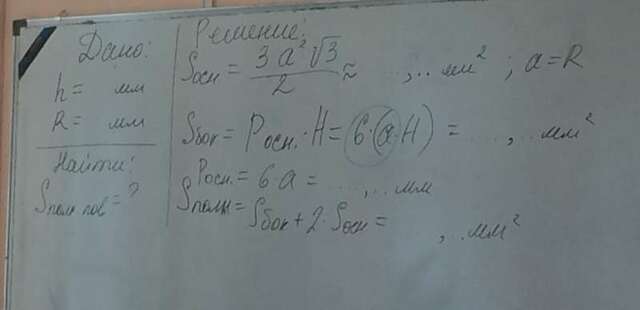 Дано:
h= мм
R= мм
Найти:
Sполн пов=?
Решение:
Sосн = 3a²√3/2 ≈ ...,.. мм² ; a=R
Sбок= Pосн.·H= 6·(a·H) = ...,...мм²
Pосн.= 6·a = ...,..мм
Sполн= Sбок+2·Sосн= ,..мм²